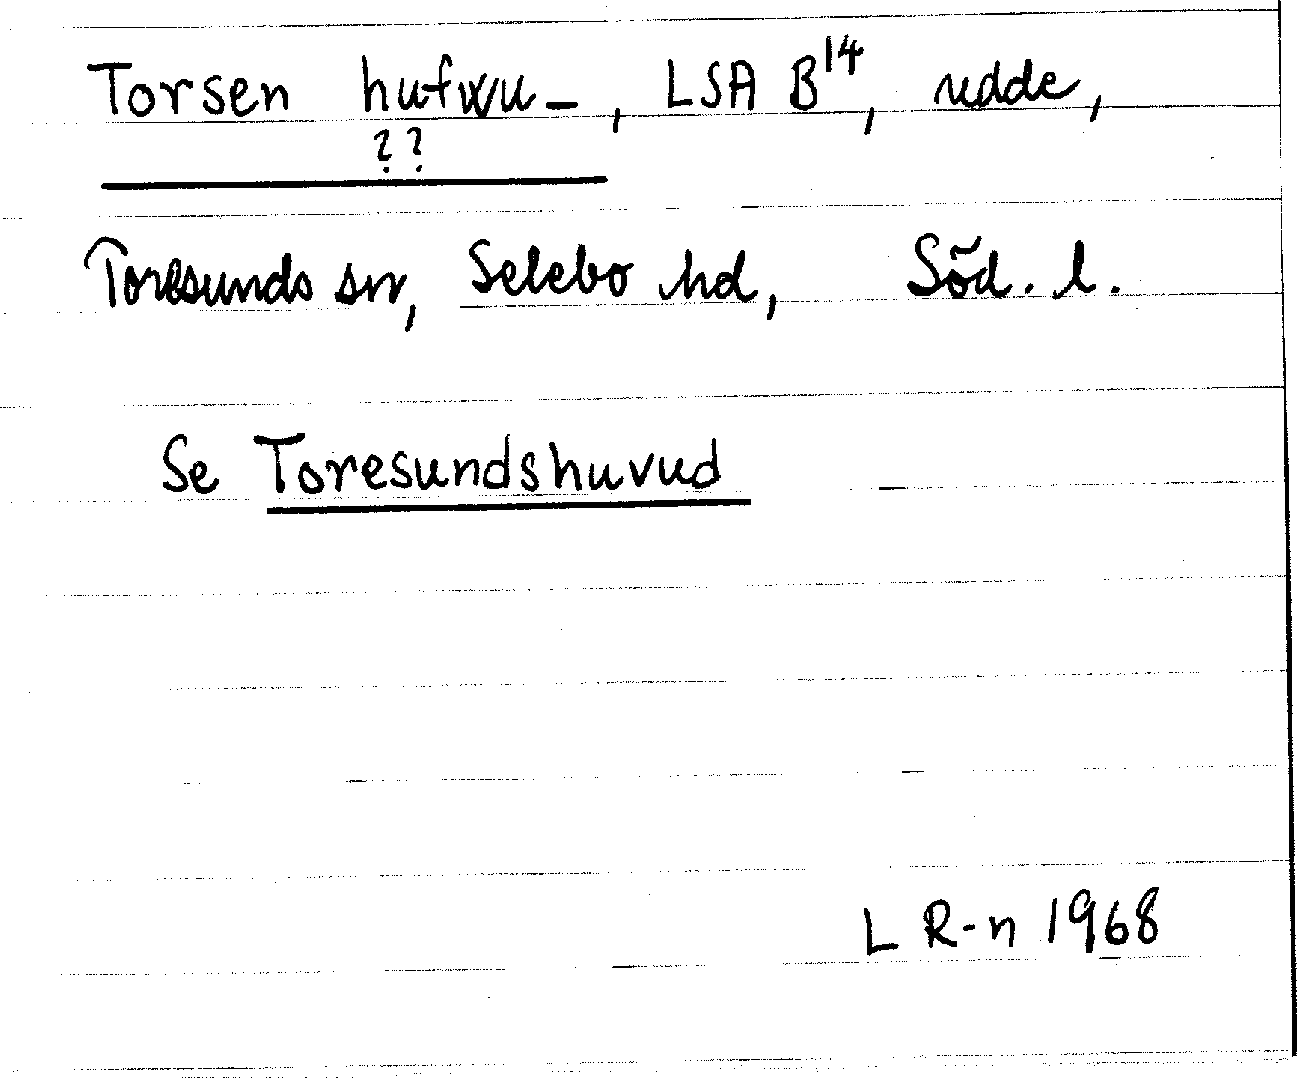 Torsen hufwu-, LSA B14, udde,
??
Toresunds sn, Selebo hd, Söd. l.
Se Toresundshuvud
L R-n 1968